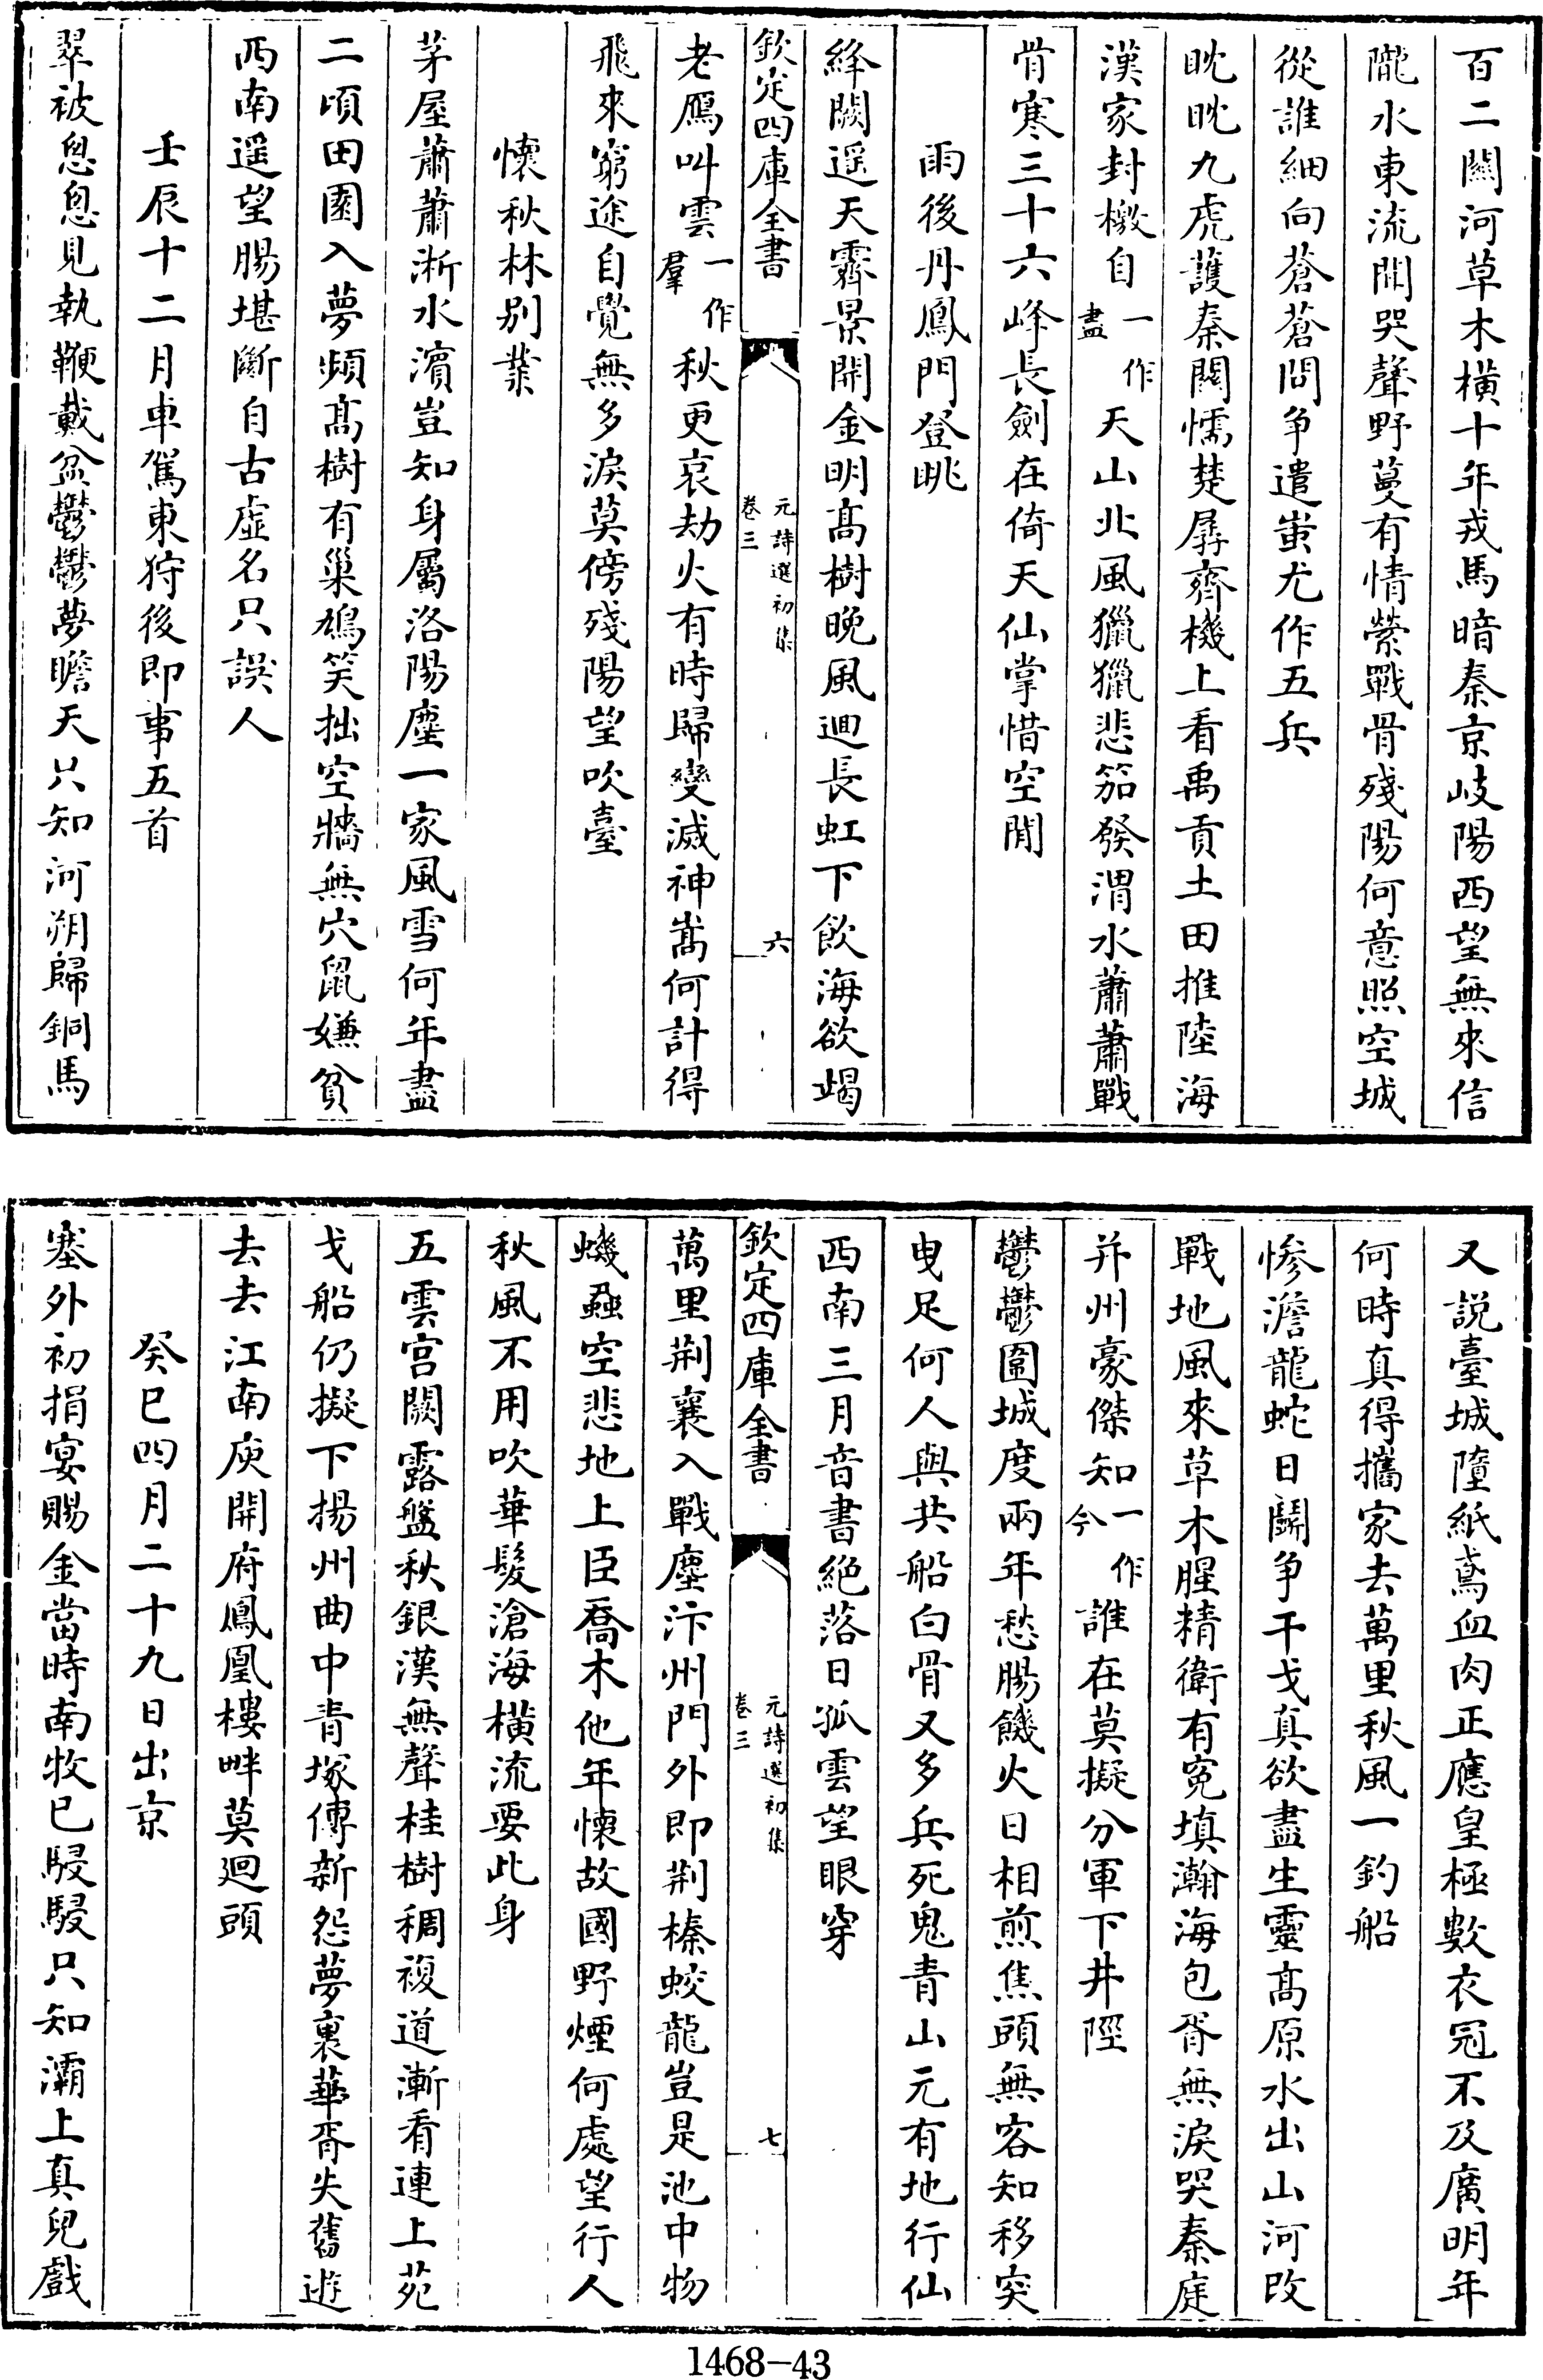 百二關河草木橫十年戎馬暗秦京岐陽西望無來信
隴水東流聞哭聲野蔓有情縈戰骨殘陽何意照空城
從誰細向蒼蒼問争遣蚩尤作五兵
眈眈九虎護秦關懦楚孱齊機上看禹貢土田推陸海
漢家封檄自一作盡天山北風獵獵悲笳發渭水蕭蕭戰
骨寒三十六峰長劍在倚天仙掌惜空閒
雨後丹鳳門登眺
絳闕遥天霽景開金明髙樹晚風迴長虹下飲海欲竭
欽定四庫全書
元詩選初集
卷三
六
老鴈叫雲一作羣秋更哀劫火有時歸變滅神嵩何計得
飛來窮途自覺無多淚莫傍殘陽望吹臺
懷秋林别業
茅屋蕭蕭淅水濱豈知身屬洛陽塵一家風雪何年盡
二頃田園入夢頻髙樹有巢鳩笑拙空牆無穴鼠嫌貧
西南遥望腸堪斷自古虚名只誤人
壬辰十二月車駕東狩後即事五首
翠被悤悤見執鞭戴盆鬱鬱夢瞻天只知河朔歸銅馬
又説臺城墮紙鳶血肉正應皇極數衣冠不及廣明年
何時真得攜家去萬里秋風一釣船
惨澹龍蛇日鬭争干戈真欲盡生靈髙原水出山河改
戰地風來草木腥精衛有寃填瀚海包胥無淚哭秦庭
并州豪傑知一作今誰在莫擬分軍下井陘
鬱鬱圍城度兩年愁腸饑火日相煎焦頭無客知移突
曳足何人與共船白骨又多兵死鬼青山元有地行仙
西南三月音書絶落日孤雲望眼穿
欽定四庫全書
元詩選初集
卷三
七
萬里荆襄入戰塵汴州門外即荆榛蛟龍豈是池中物
蟣蝨空悲地上臣喬木他年懐故國野煙何處望行人
秋風不用吹華髮滄海橫流要此身
五雲宫闕露盤秋銀漢無聲桂樹稠複道漸看連上苑
戈船仍擬下揚州曲中青塚傳新怨夢裏華胥失舊遊
去去江南庾開府鳳凰樓畔莫迴頭
癸巳四月二十九日出京
塞外初捐宴賜金當時南牧已駸駸只知灞上真兒戲
1468-43